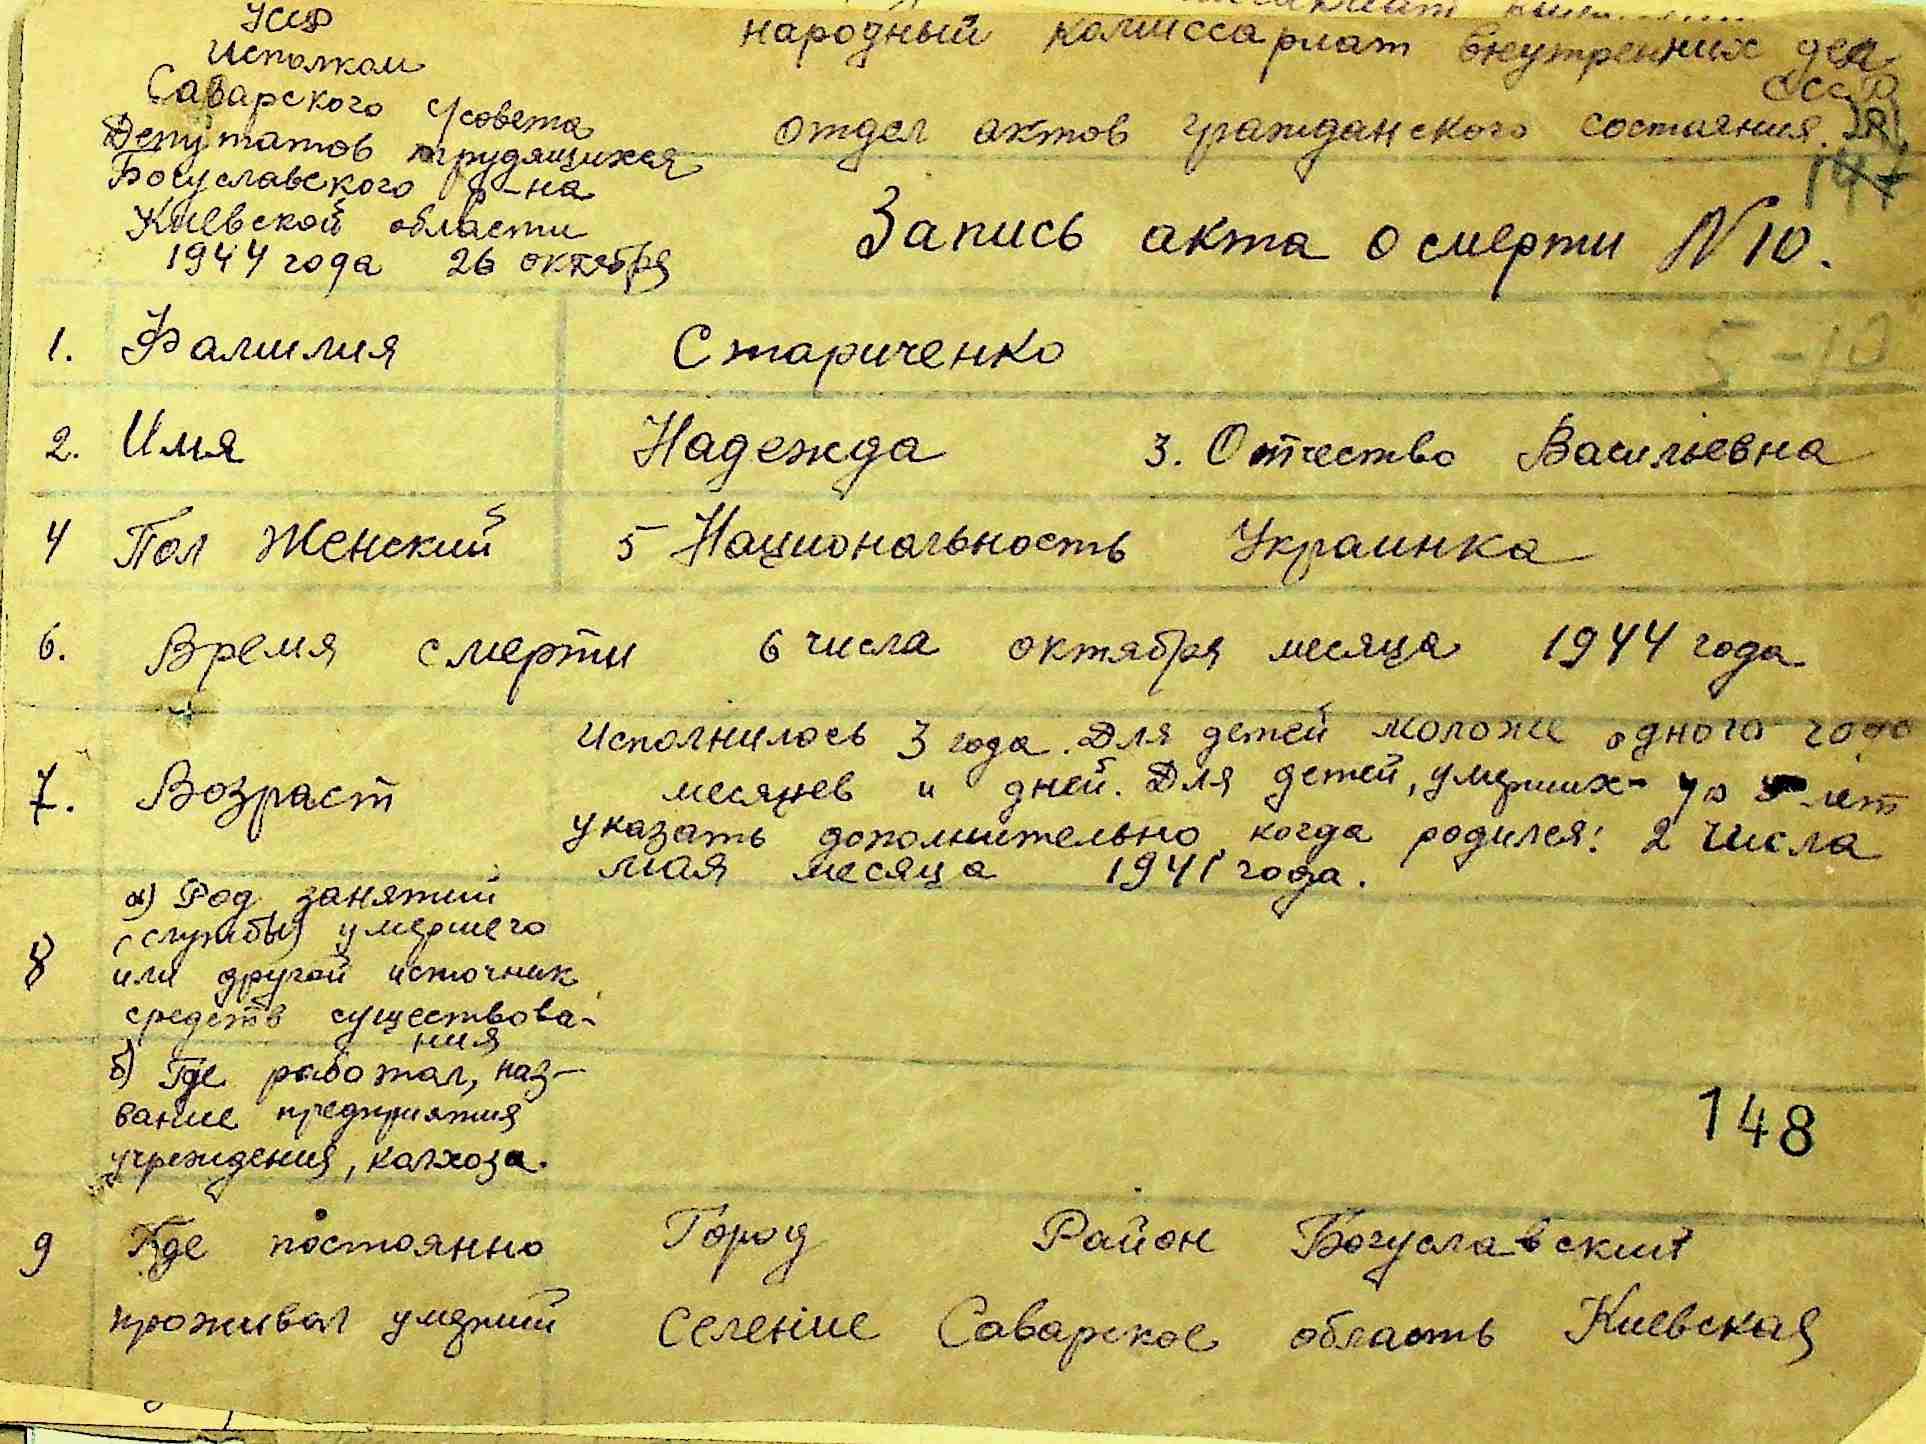 УССР
Исполком
Саварского с/совета
Депутатов трудящихся
Богуславского р-на
Киевской области
1944 года 26 октября
народный комиссариат внутренних дел
СССР
отдел актов гражданского состояния.
147
Запись акта о смерти N 10.
5-10
1. Фамилия Стариченко
2. Имя Надежда 3. Отчество Васильевна
4 Пол Женский 5 Национальность Украинка
6. Время смерти 6 числа октября месяца 1944 года
7. Возраст
Исполнилось 3 года. Для детей моложе одного года
месяцев и дней. Для детей, умерших до 5 лет
указать дополнительно когда родился: 2 числа
мая месяца 1941 года.
8
а) Род занятий
(службы) умершего
или другой источник
средств существова-
ния
б) Где работал, наз-
вание предприятия
учреждения, колхоза.
148
9 Где постоянно Город Район Богуславский
проживал умерший Селение Саварское область Киевская